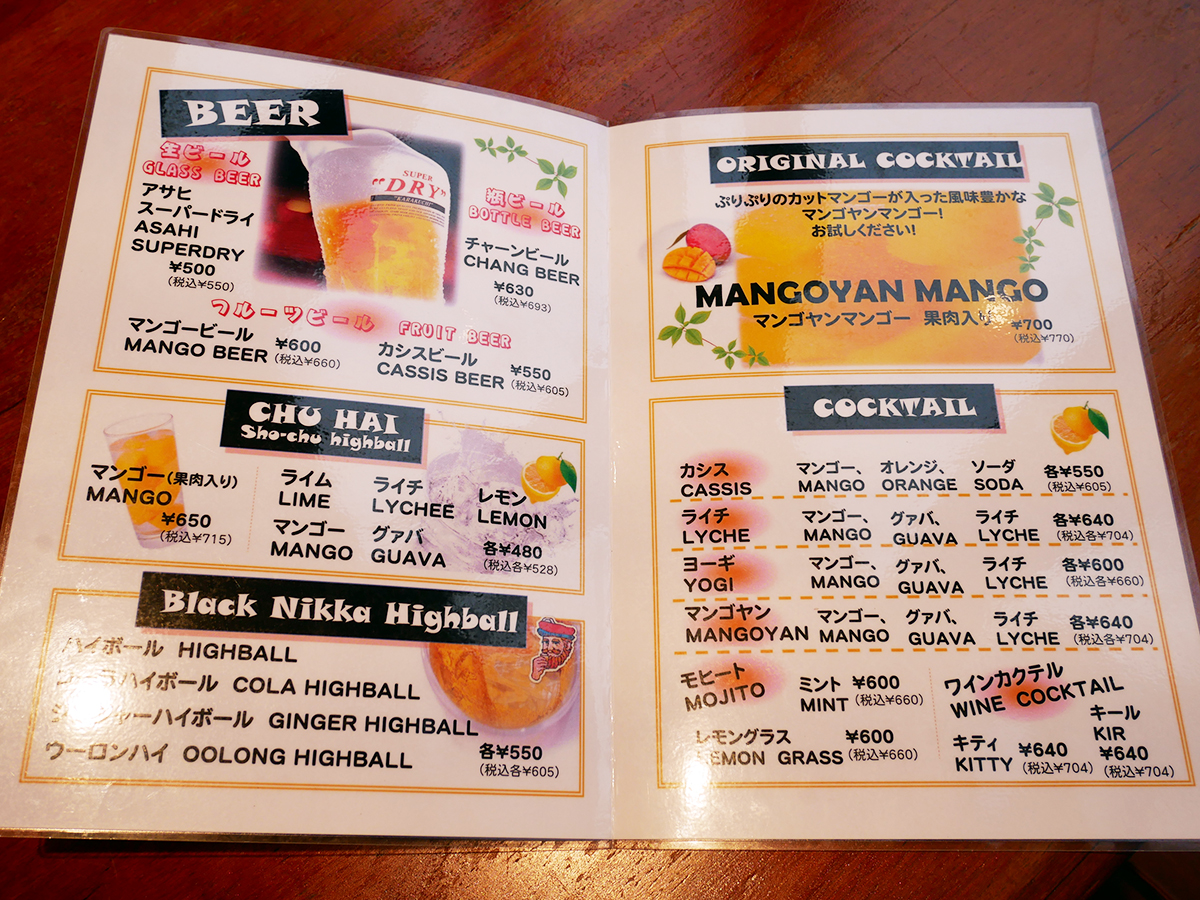 BEER
生ビール
GLASS BEER
アサヒ
スーパードライ
ASAHI
SUPERDRY
¥500
(税込¥550)
SUPER
"DRY"
"KARAKUCHI"
瓶ビール
BOTTLE BEER
チャーンビール
CHANG BEER
¥630
(税込¥693)
フルーツビール FRUIT BEER
マンゴービール
MANGO BEER ¥600
(税込¥660)
カシスビール
CASSIS BEER ¥550
(税込¥605)
CHU HAI
Sho-chu highball
マンゴー(果肉入り)
MANGO
¥650
(税込¥715)
ライム ライチ レモン
LIME LYCHEE LEMON
マンゴー グァバ
MANGO GUAVA 各¥480
(税込各¥528)
Black Nikka Highball
ハイボール HIGHBALL
ハイボール COLA HIGHBALL
ジンジャーハイボール GINGER HIGHBALL
ウーロンハイ OOLONG HIGHBALL 各¥550
(税込各¥605)
ORIGINAL COCKTAIL
ぷりぷりのカットマンゴーが入った風味豊かな
マンゴヤンマンゴー!
お試しください!
MANGOYAN MANGO
マンゴヤンマンゴー 果肉入り ¥700
(税込¥770)
COCKTAIL
カシス マンゴー、 オレンジ、 ソーダ 各¥550
CASSIS MANGO ORANGE SODA (税込¥605)
ライチ マンゴー、 グァバ、 ライチ 各¥640
LYCHE MANGO GUAVA LYCHE (税込各¥704)
ヨーギ マンゴー、 グァバ、 ライチ 各¥600
YOGI MANGO GUAVA LYCHE (税込各¥660)
マンゴヤン マンゴー、 グァバ、 ライチ 各¥640
MANGOYAN MANGO GUAVA LYCHE (税込各¥704)
モヒート ミント ¥600
MOJITO MINT (税込¥660)
レモングラス ¥600
LEMON GRASS (税込¥660)
ワインカクテル
WINE COCKTAIL
キール
KIR
¥640
(税込¥704)
キティ ¥640
KITTY (税込¥704)